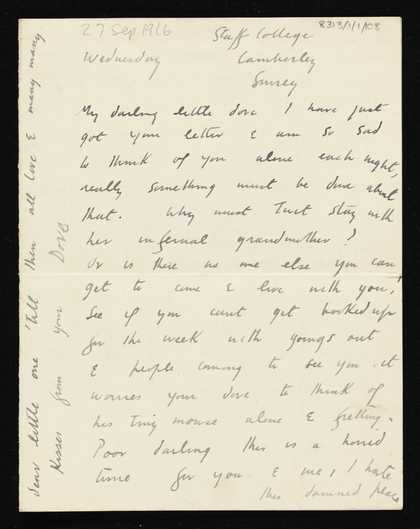 27 Sep 1916
8313/1/1/103
Staff College
Wednesday
Camberley
Surrey
My darling little dove I have just
got your letter & am so sad
to think of you alone each night,
really something must be done about
that. Why must Twit stay with
her infernal grandmother?
Or is there no one else you can
get to come & live with you,
see if you can't get booked up
for the week with goings out
& people coming to see you. it
worries your dove to think of
his tiny mouse alone & fretting.
Poor darling this is a horrid
time for you & me, I hate
this damned place
dear little one 'till then all love & many many
kisses from your Dove